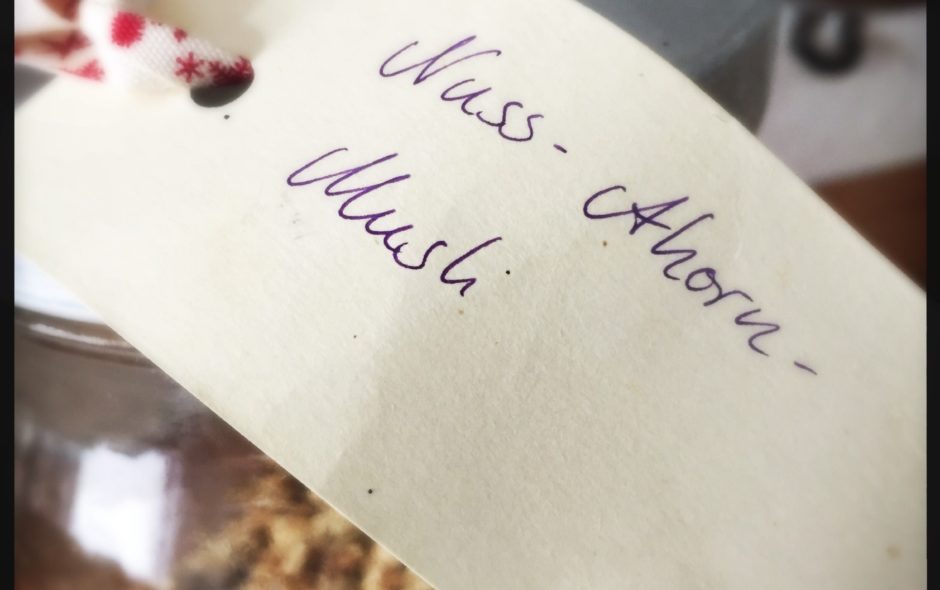 Nuss- Ahorn-
Musli